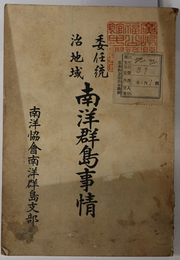 委任統
治地域
南洋群島事情
南洋協會南洋群島支部